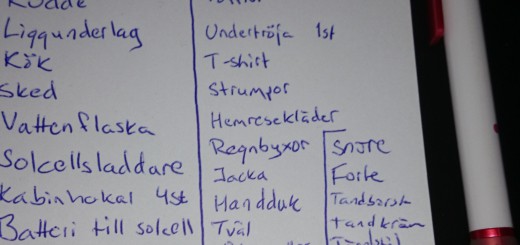 Kudde
Liggunderlag
Kök
Sked
Vattenflaska
Solcellsladdare
Kabinhokal 4st
Batteri till solcell
Undertröja 1st
T-shirt
Strumpor
Hemresekläder
Regnbyxor
Jacka
Handduk
Tvål
Snöre
Forte
Tandborst
tandkräm